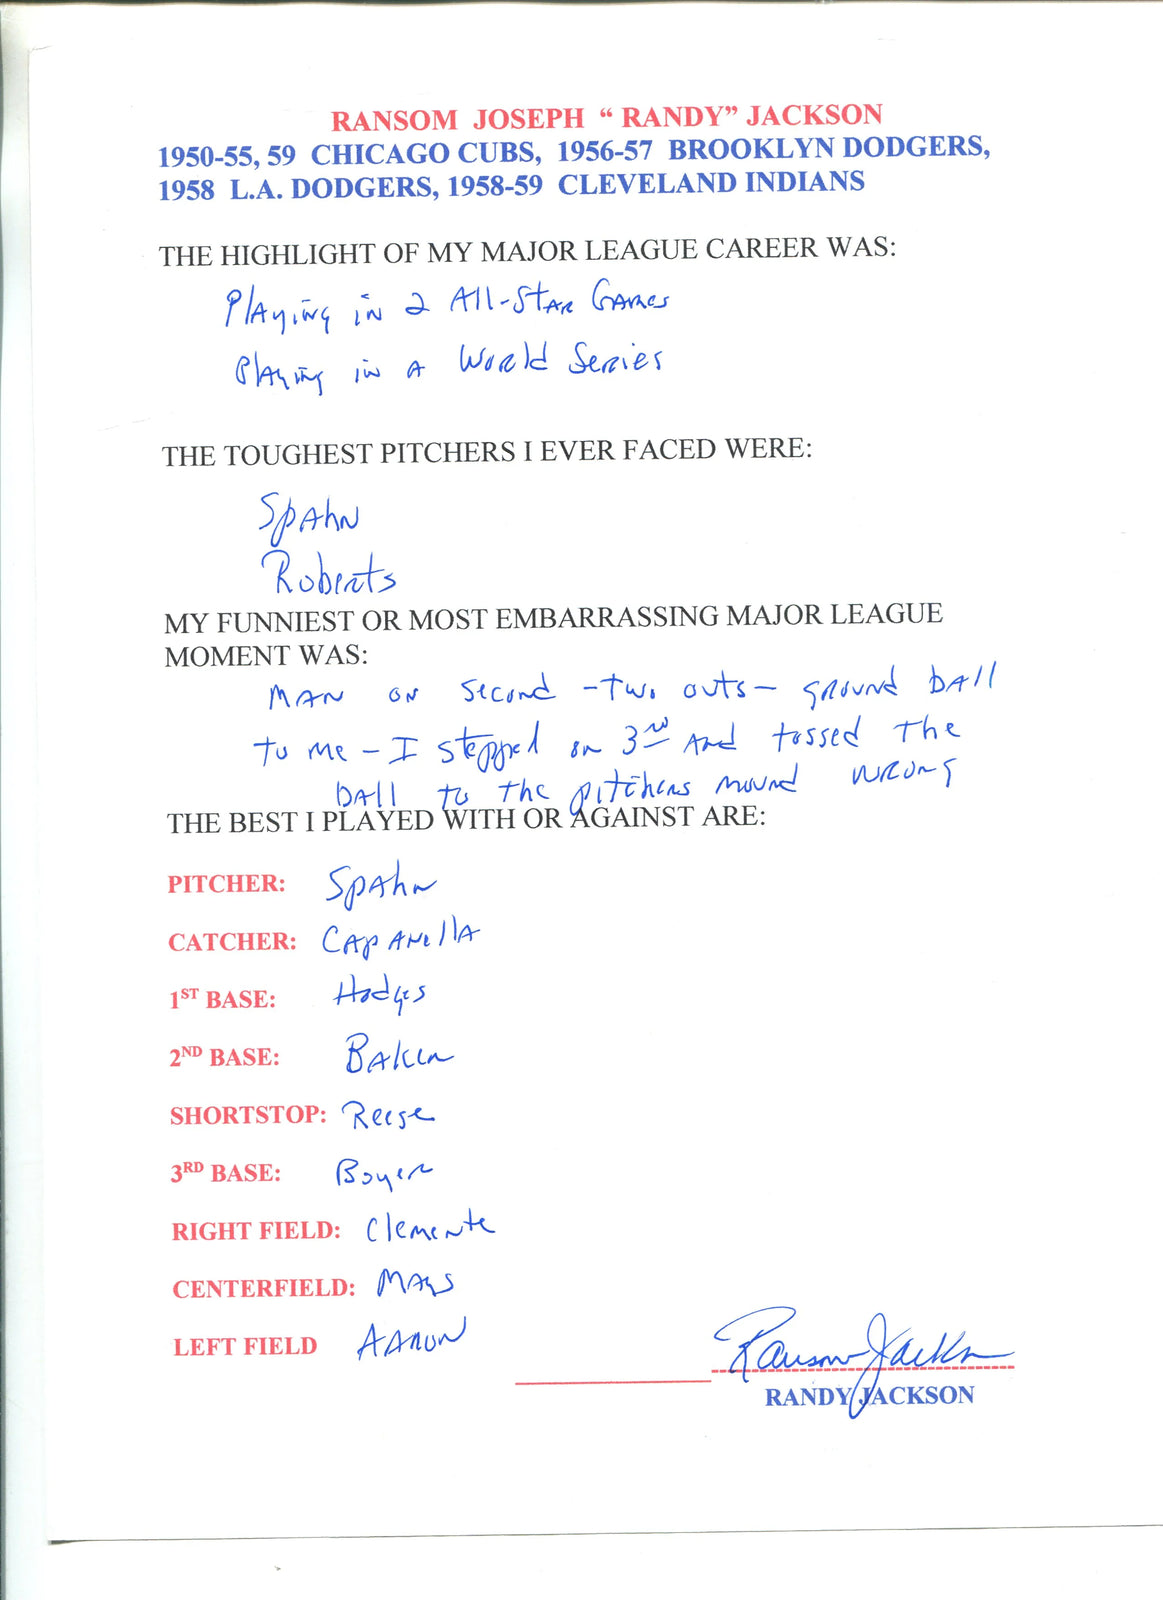 RANSOM JOSEPH “ RANDY” JACKSON
1950-55, 59 CHICAGO CUBS, 1956-57 BROOKLYN DODGERS,
1958 L.A. DODGERS, 1958-59 CLEVELAND INDIANS
THE HIGHLIGHT OF MY MAJOR LEAGUE CAREER WAS:
Playing in 2 All-Star Games
Playing in a World Series
THE TOUGHEST PITCHERS I EVER FACED WERE:
Spahn
Roberts
MY FUNNIEST OR MOST EMBARRASSING MAJOR LEAGUE
MOMENT WAS:
Man on second - two outs - ground ball
to me - I stepped on 3rd and tossed the
ball to the pitchers mound wrong
THE BEST I PLAYED WITH OR AGAINST ARE:
PITCHER: Spahn
CATCHER: Capanella
1ST BASE: Hodges
2ND BASE: Baker
SHORTSTOP: Reese
3RD BASE: Boyer
RIGHT FIELD: Clemente
CENTERFIELD: Mays
LEFT FIELD Aaron
Ransom Jackson
RANDY JACKSON